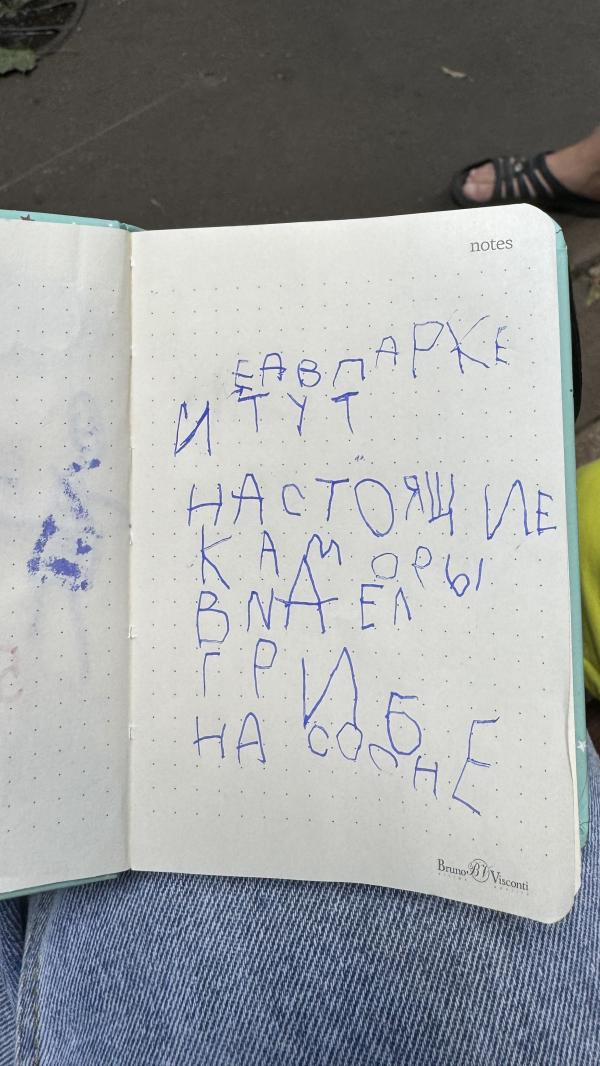 notes
ЕАВПАРКЕ
И ТУТ
НАСТОЯЩИЕ
КАМОРЫ
ВИДЕЛ
ГРИБЕ
НА СОСНЕ
Bruno BV Visconti